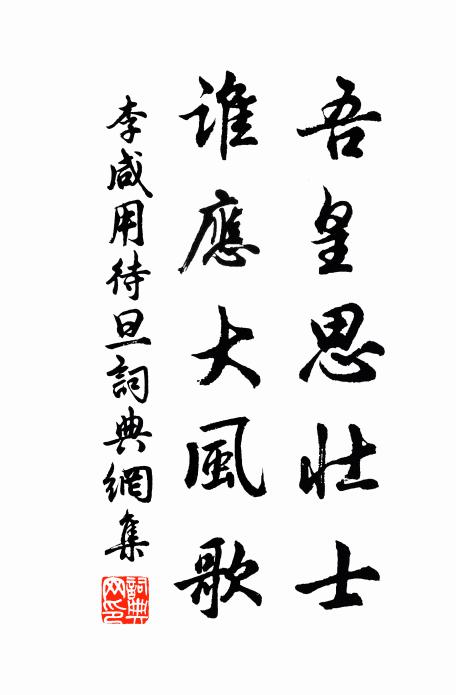 吾皇思壮士
誰應大風歌
李咸用待旦詞典網集
詞典網印